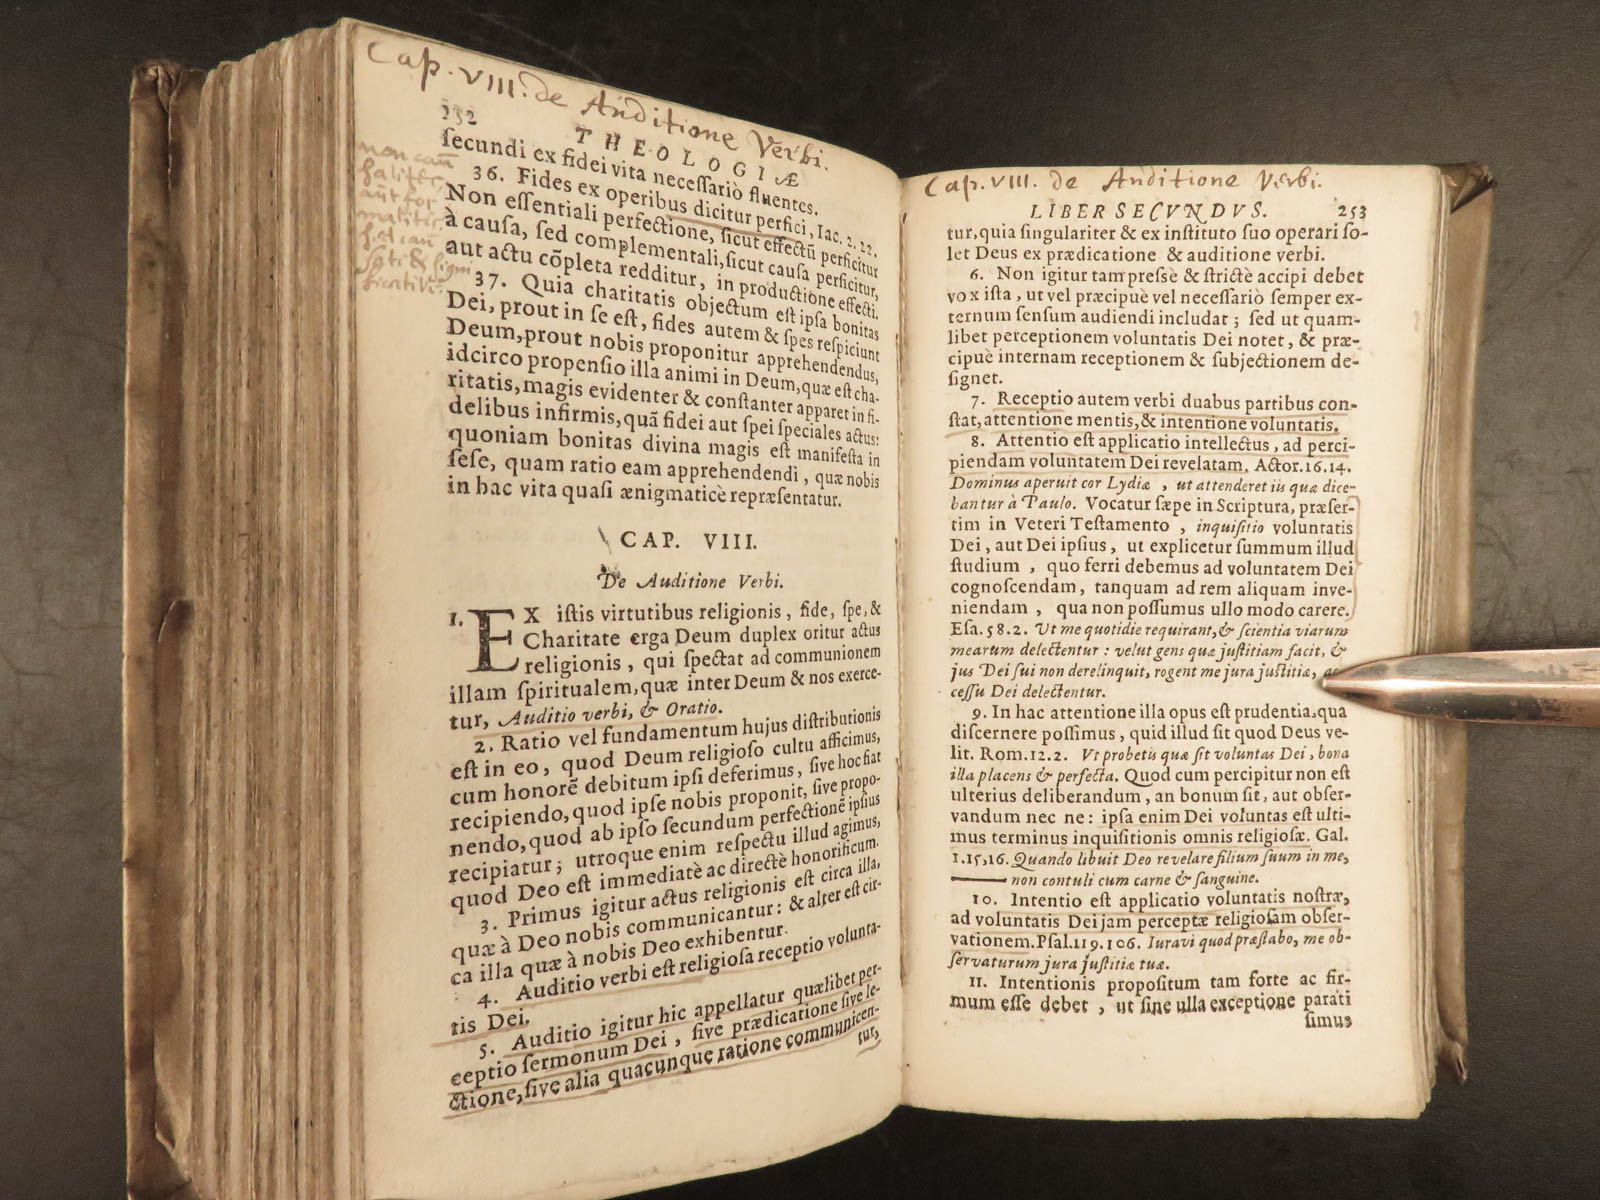 Cap. VIII. de Auditione Verbi.
252
THEOLOGIÆ
non cau
saliter,
aut for
maliter
sed cau
ſecundi ex fidei vita neceſſariò fluentes.
36. Fides ex operibus dicitur perfici, Iac. 2. 22.
Non eſſentiali perfectione, ſicut effectũ perficitur
à cauſa, ſed complementali, ſicut cauſa perficitur,
aut actu cõpleta redditur, in productione effecti.
37. Quia charitatis objectum eſt ipſa bonitas
Dei, prout in ſe eſt, fides autem & ſpes reſpiciunt
Deum, prout nobis proponitur apprehendendus,
idcirco propenſio illa animi in Deum, quæ eſt cha-
ritatis, magis evidenter & conſtanter apparet in fi-
delibus infirmis, quã fidei aut ſpei ſpeciales actus:
quoniam bonitas divina magis eſt manifeſta in
ſeſe, quam ratio eam apprehendendi, quæ nobis
in hac vita quaſi ænigmaticè repræſentatur.
CAP. VIII.
De Auditione Verbi.
1. EX iſtis virtutibus religionis, fide, ſpe, &
Charitate erga Deum duplex oritur actus
religionis, qui ſpectat ad communionem
illam ſpiritualem, quæ inter Deum & nos exerce-
tur, Auditio verbi, & Oratio.
2. Ratio vel fundamentum hujus diſtributionis
eſt in eo, quod Deum religioſo cultu afficimus,
cum honorẽ debitum ipſi deferimus, ſive hoc fiat
recipiendo, quod ipſe nobis proponit, ſive propo-
nendo, quod ab ipſo ſecundum perfectionẽ ipſius
recipiatur; utroque enim reſpectu illud agimus,
quod Deo eſt immediatè ac directè honorificum.
3. Primus igitur actus religionis eſt circa illa,
quæ à Deo nobis communicantur: & alter eſt cir-
ca illa quæ à nobis Deo exhibentur.
4. Auditio verbi eſt religioſa receptio volunta-
tis Dei.
5. Auditio igitur hic appellatur quælibet per-
ceptio ſermonum Dei, ſive prædicatione ſive le-
ctione, ſive alia quacunque ratione communicen-
tur,
Cap. VIII. de Auditione Verbi.
LIBER SECVNDVS. 253
tur, quia ſingulariter & ex inſtituto ſuo operari ſo-
let Deus ex prædicatione & auditione verbi.
6. Non igitur tam preſſè & ſtrictè accipi debet
vox iſta, ut vel præcipuè vel neceſſariò ſemper ex-
ternum ſenſum audiendi includat; ſed ut quam-
libet perceptionem voluntatis Dei notet, & præ-
cipuè internam receptionem & ſubjectionem de-
ſignet.
7. Receptio autem verbi duabus partibus con-
ſtat, attentione mentis, & intentione voluntatis.
8. Attentio eſt applicatio intellectus, ad perci-
piendam voluntatem Dei revelatam, Actor. 16. 14.
Dominus aperuit cor Lydiæ, ut attenderet iis quæ dice-
bantur à Paulo. Vocatur ſæpe in Scriptura, præſer-
tim in Veteri Teſtamento, inquiſitio voluntatis
Dei, aut Dei ipſius, ut explicetur ſummum illud
ſtudium, quo ferri debemus ad voluntatem Dei
cognoſcendam, tanquam ad rem aliquam inve-
niendam, qua non poſſumus ullo modo carere.
Eſa. 58. 2. Ut me quotidie requirant, & ſcientia viarum
mearum delectentur: velut gens quæ juſtitiam facit, &
jus Dei ſui non derelinquit, rogent me jura juſtitiæ, ac-
ceſſu Dei delectentur.
9. In hac attentione illa opus eſt prudentia, qua
diſcernere poſſimus, quid illud ſit quod Deus ve-
lit. Rom. 12. 2. Vt probetis quæ ſit voluntas Dei, bona
illa placens & perfecta. Quod cum percipitur non eſt
ulterius deliberandum, an bonum ſit, aut obſer-
vandum nec ne: ipſa enim Dei voluntas eſt ulti-
mus terminus inquiſitionis omnis religioſæ. Gal.
1. 15, 16. Quando libuit Deo revelare filium ſuum in me,
—— non contuli cum carne & ſanguine.
10. Intentio eſt applicatio voluntatis noſtræ,
ad voluntatis Dei jam perceptæ religioſam obſer-
vationem. Pſal. 119. 106. Iuravi quod præſtabo, me ob-
ſervaturum jura juſtitiæ tuæ.
11. Intentionis propoſitum tam forte ac fir-
mum eſſe debet, ut ſine ulla exceptione parati
ſimus